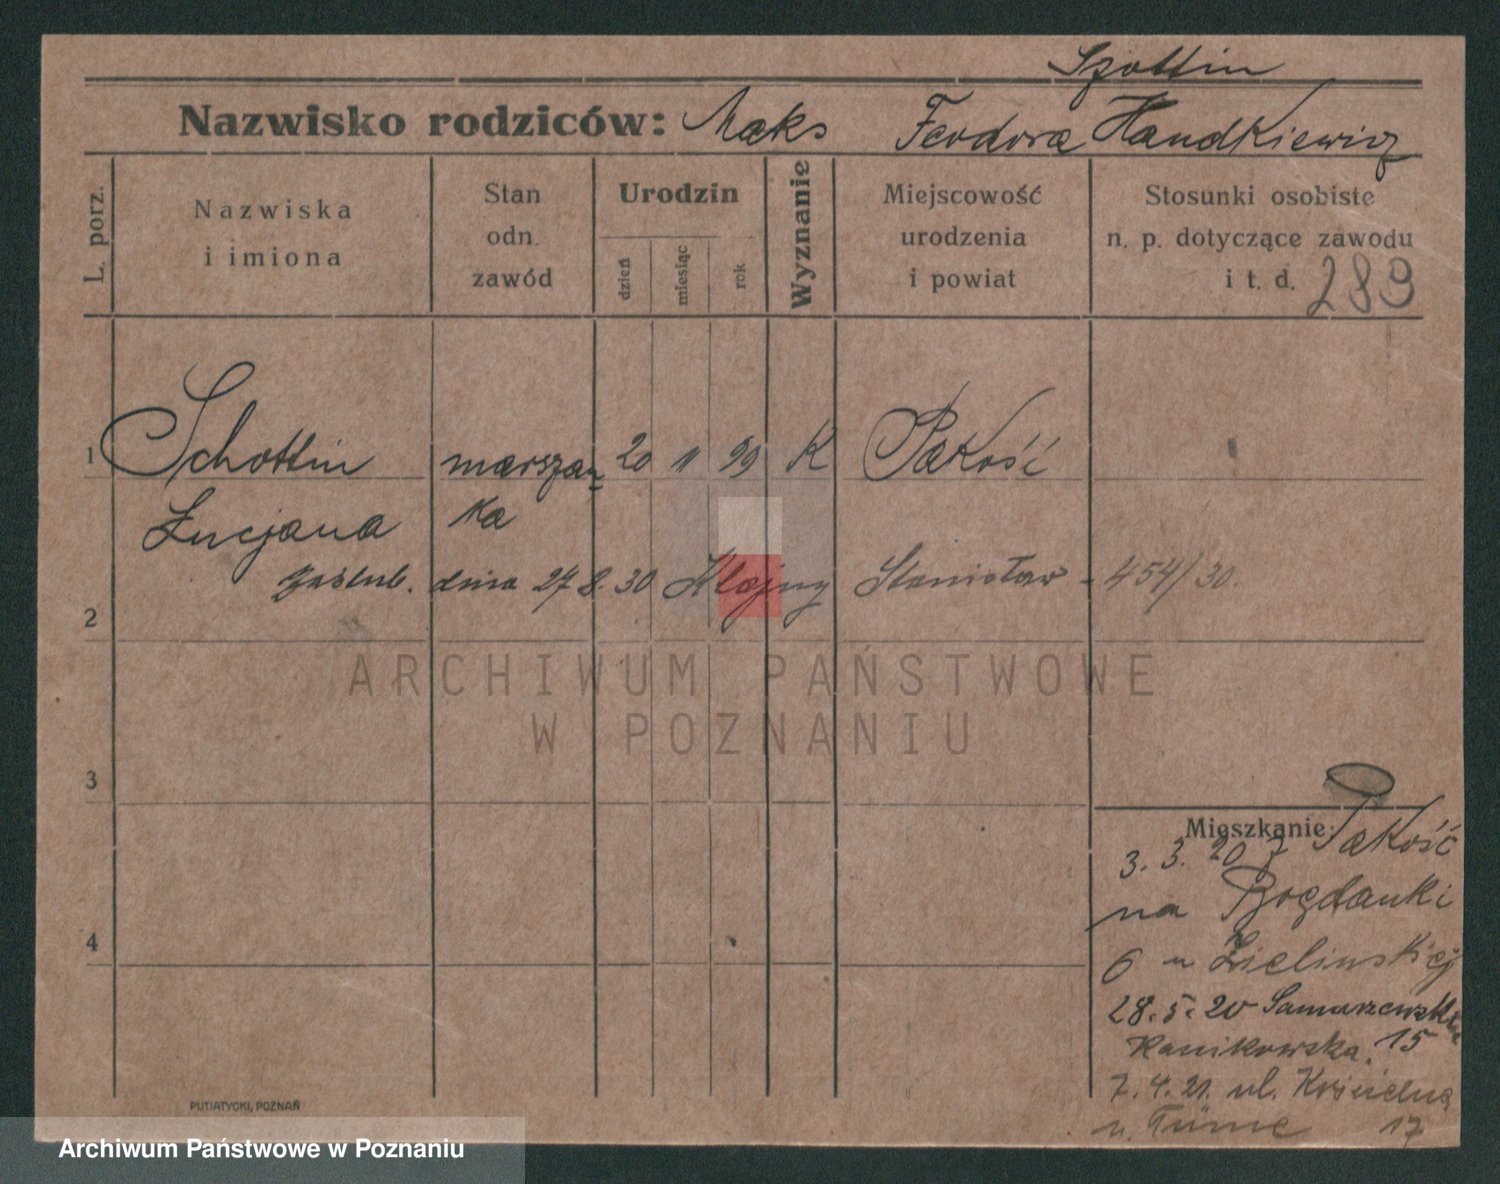 Szottin
Nazwisko rodziców: Maks Feodora Handkiewicz
L. porz.
Nazwiska
i imiona
Stan
odn.
zawód
Urodzin
dzień
miesiąc
rok
Wyznanie
Miejscowość
urodzenia
i powiat
Stosunki osobiste
n. p. dotyczące zawodu
i t. d. 289
1 Schottin marszan- 20 11 99 K Pakość
Łucjana ka
zaślub. dnia 27 8. 30 Klojny Stanisław - 454/30.
2
3
4
Mieszkanie:
3. 3. 20 z Pakość
na Bogdanki
6 u Zielinskiej
28. 5. 20 Samarzewska
Kanikowska. 15
7. 4. 21. ul. Kościelna
u. 17
PUTIATYCKI, POZNAŃ
ARCHIWUM PAŃSTWOWE
W POZNANIU
Archiwum Państwowe w Poznaniu